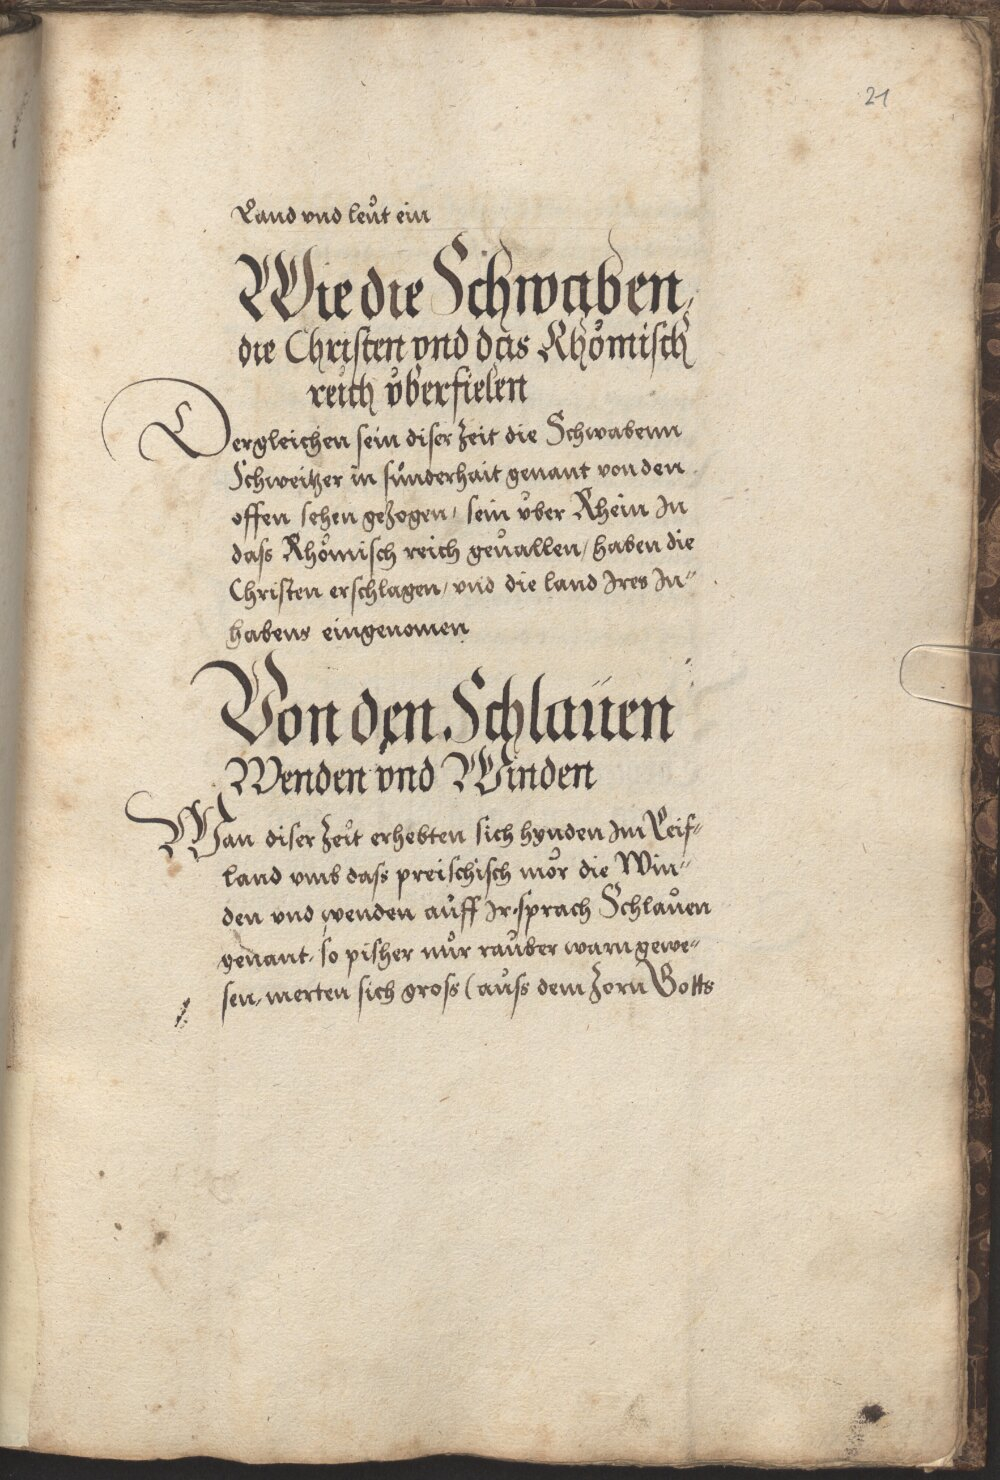 21
Land vnd leůt ein
Wie die Schwaben,
die Christen vnd das Rhömisch
reich vberfielen
Dergleichen sein diser zeit die Schwabenn
Schweitzer in sünderhait genant von den
offen sehen gezogen / sein vber Rhein In
dass Rhömisch reich geuallen / haben die
Christen erschlagen / vnd die land Ires In⸗
habens eingenomen
Von den Schlauen
Wenden vnd Winden
Wan diser zeit erhebten sich hynden Im Leif⸗
land vmb dass preischisch mör die Win⸗
den vnd wenden auff Ir sprach Schlauen
genant, so pisher nůr rauber warn gewe⸗
sen, merten sich gross (auss dem zorn Gotts